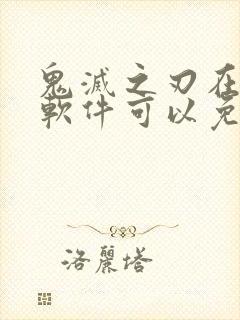 鬼滅之刃在
軟件可以免
洛麗塔